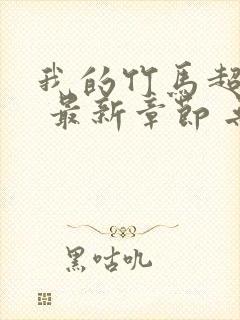 我的竹马超
最新章节
黑咕叽